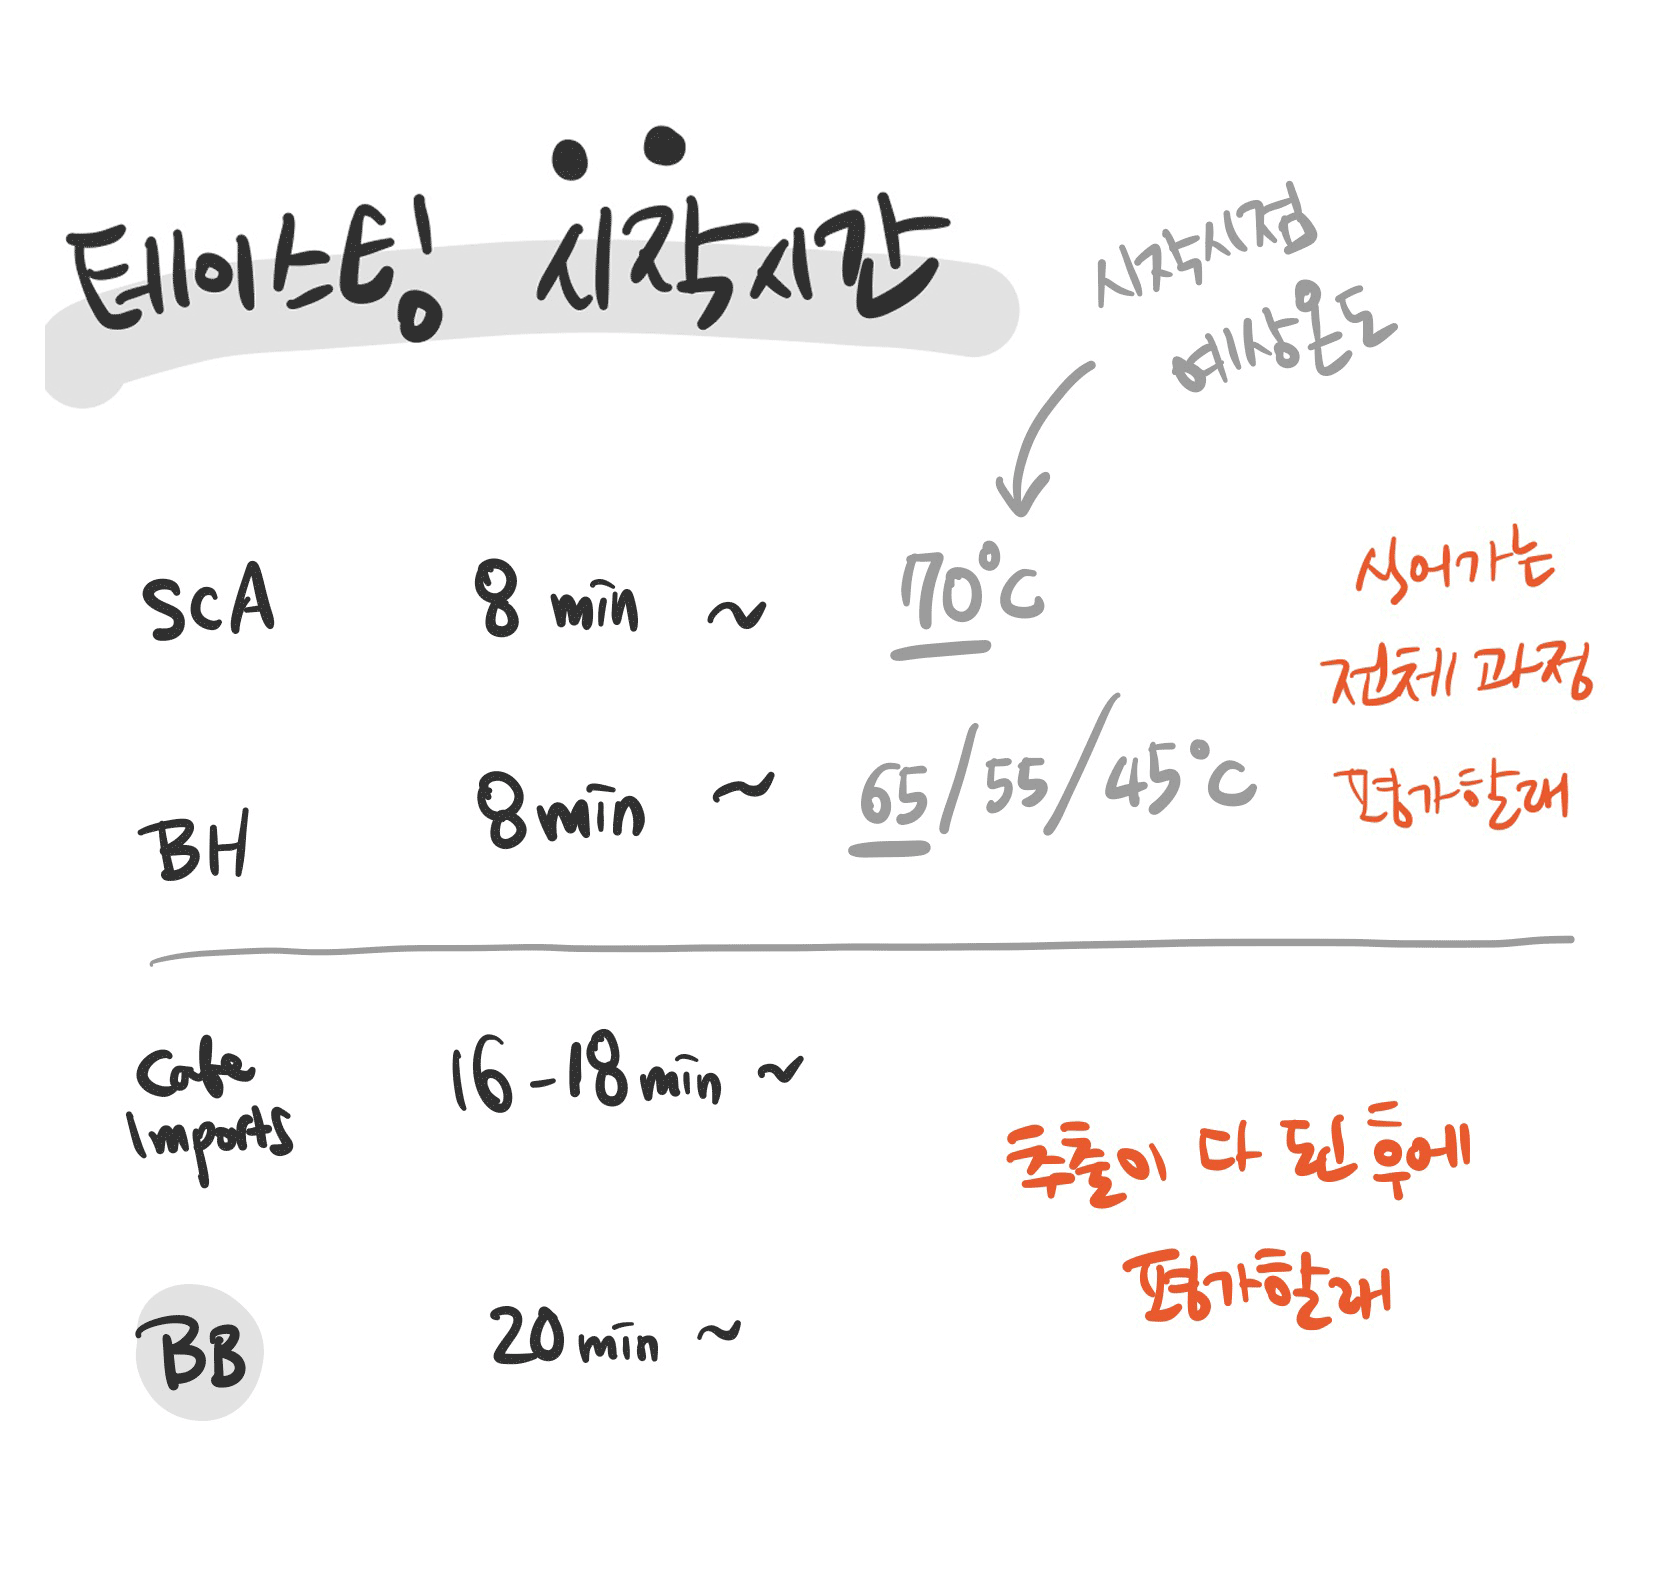 테이스팅 시작시간
시작시점
예상온도
SCA 8 min ~ 70°C
BH 8min ~ 65/55/45°C
식어가는
전체 과정
평가할래
Cafe
Imports
16-18min ~
BB 20min ~
추출이 다 된 후에
평가할래